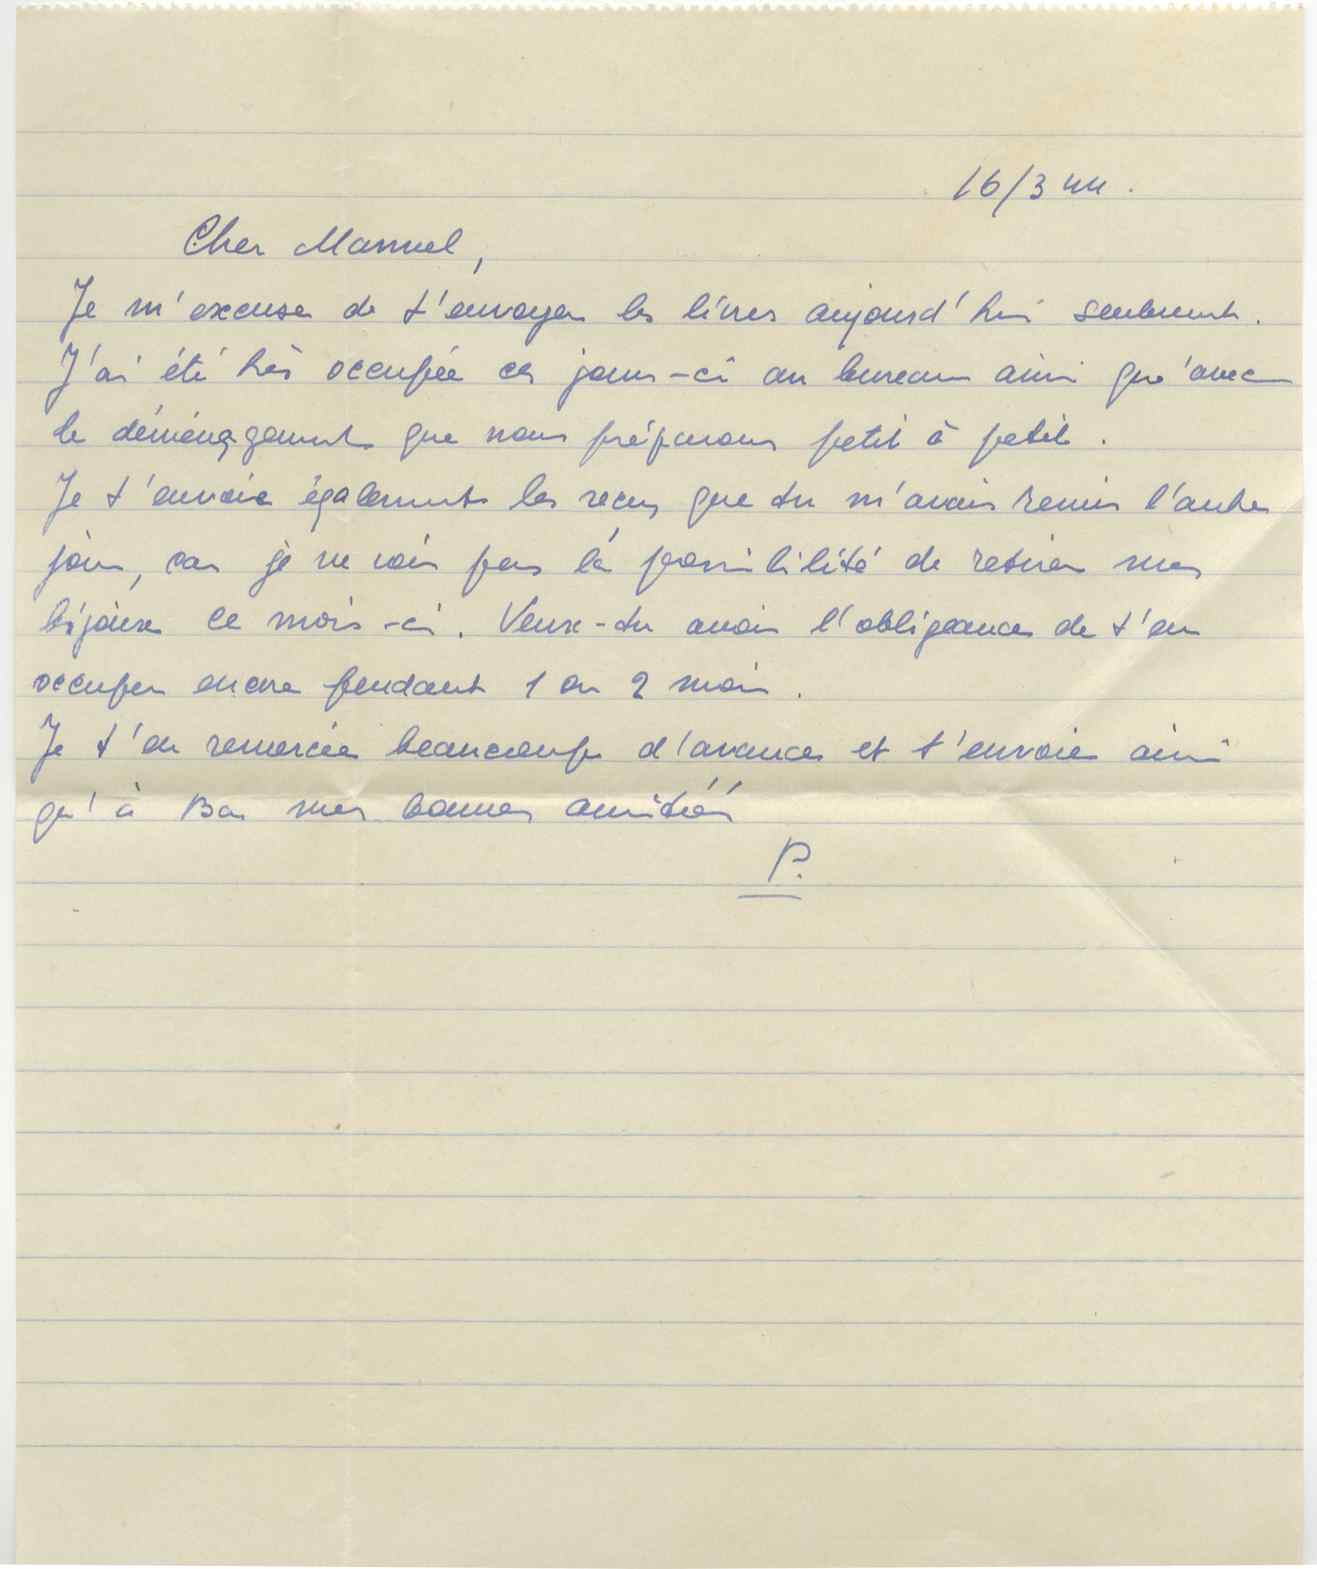 16/3 44.
Cher Manuel,
Je m'excuse de t'envoyer les livres aujourd'hui seulement.
J'ai été très occupée ces jours-ci au bureau ainsi qu'avec
le déménagement que nous préparons petit à petit.
Je t'envoie également les reçus que tu m'avais remis l'autre
jour, car je ne vois pas la possibilité de retirer mes
bijoux ce mois-ci. Veux-tu avoir l'obligeance de t'en
occuper encore pendant 1 ou 2 mois.
Je t'en remercie beaucoup d'avance et t'envoie ainsi
qu'à mes bonnes amitiés
P.